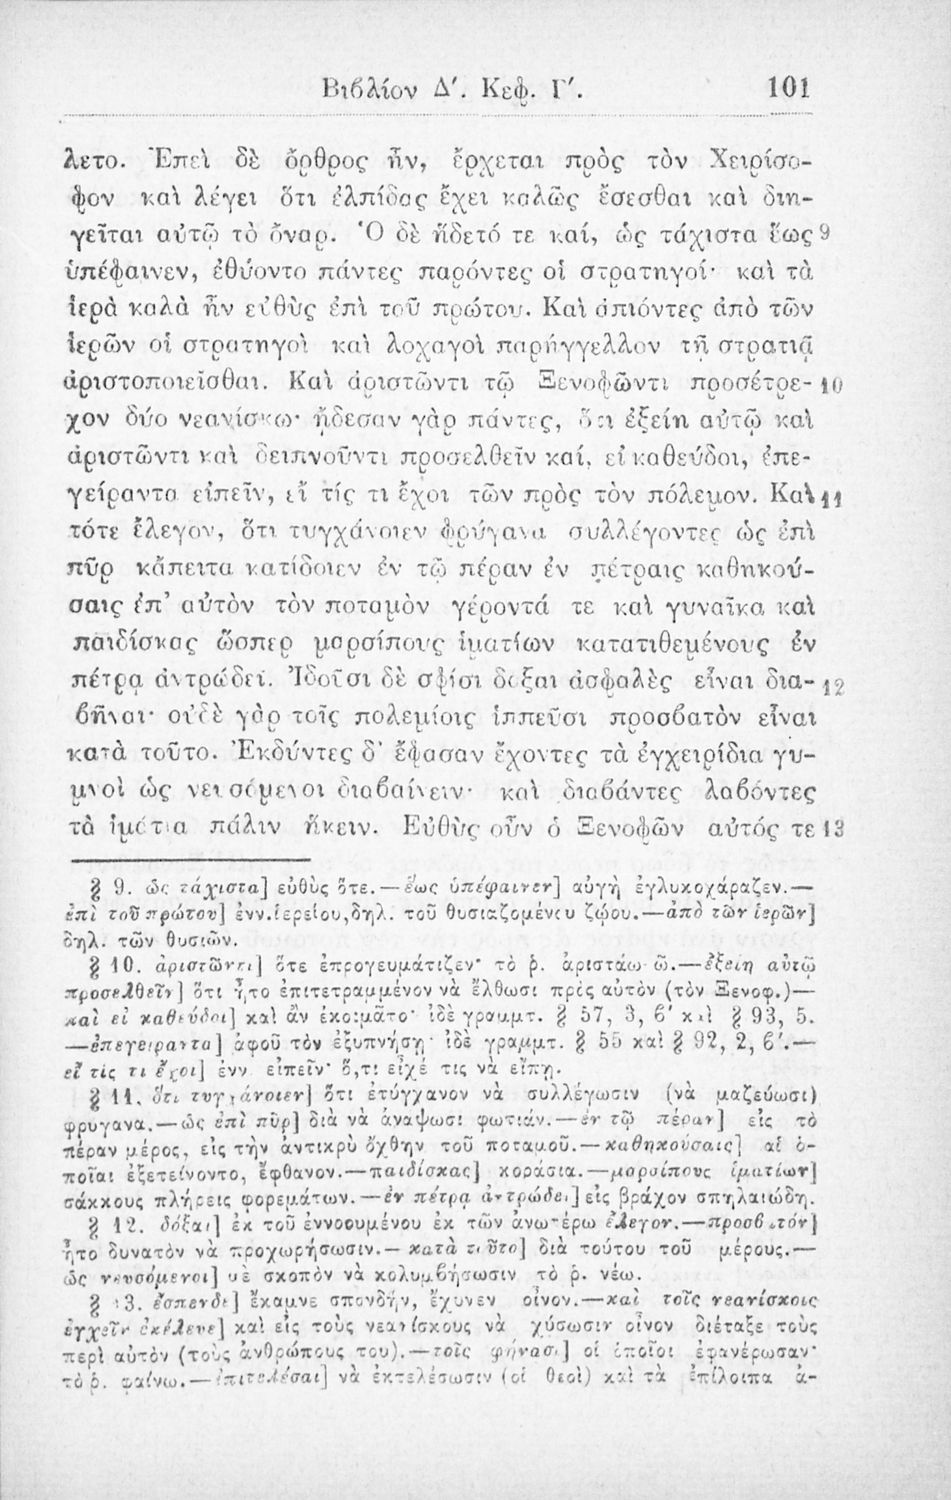 Βιβλίον Δ'. Κεφ. Γ'. 101
λετο. Ἐπεὶ δὲ ὄρθρος ἦν, ἔρχεται πρὸς τὸν Χειρίσο-
φον καὶ λέγει ὅτι ἐλπίδας ἔχει καλῶς ἔσεσθαι καὶ διη-
γεῖται αὐτῷ τὸ ὄναρ. Ὁ δὲ ἥδετό τε καί, ὡς τάχιστα ἕως 9
ὑπέφαινεν, ἐθύοντο πάντες παρόντες οἱ στρατηγοί· καὶ τὰ
ἱερὰ καλὰ ἦν εὐθὺς ἐπὶ τοῦ πρώτου. Καὶ ἀπιόντες ἀπὸ τῶν
ἱερῶν οἱ στρατηγοὶ καὶ λοχαγοὶ παρήγγελλον τῇ στρατιᾷ
ἀριστοποιεῖσθαι. Καὶ ἀριστῶντι τῷ Ξενοφῶντι προσέτρε- 10
χον δύο νεανίσκω· ᾔδεσαν γὰρ πάντες, ὅτι ἐξείη αὐτῷ καὶ
ἀριστῶντι καὶ δειπνοῦντι προσελθεῖν καί, εἰ καθεύδοι, ἐπε-
γείραντα εἰπεῖν, εἴ τίς τι ἔχοι τῶν πρὸς τὸν πόλεμον. Καὶ 11
τότε ἔλεγον, ὅτι τυγχάνοιεν φρύγανα συλλέγοντες ὡς ἐπὶ
πῦρ κἄπειτα κατίδοιεν ἐν τῷ πέραν ἐν πέτραις καθηκού-
σαις ἐπ' αὐτὸν τὸν ποταμὸν γέροντά τε καὶ γυναῖκα καὶ
παιδίσκας ὥσπερ μαρσίπους ἱματίων κατατιθεμένους ἐν
πέτρᾳ ἀντρώδει. Ἰδοῦσι δὲ σφίσι δόξαι ἀσφαλὲς εἶναι δια- 12
βῆναι· οὐδὲ γὰρ τοῖς πολεμίοις ἱππεῦσι προσβατὸν εἶναι
κατὰ τοῦτο. Ἐκδύντες δ' ἔφασαν ἔχοντες τὰ ἐγχειρίδια γυ-
μνοὶ ὡς νευσόμενοι διαβαίνειν· καὶ διαβάντες λαβόντες
τὰ ἱμάτια πάλιν ἥκειν. Εὐθὺς οὖν ὁ Ξενοφῶν αὐτός τε 13
§ 9. ὡς τάχιστα] εὐθὺς ὅτε.—ἕως ὑπέφαινεν] αὐγὴ ἐγλυκοχάραζεν.—
ἐπὶ τοῦ πρώτου] ἐνν. ἱερείου, δηλ. τοῦ θυσιαζομένου ζῴου.—ἀπὸ τῶν ἱερῶν]
δηλ. τῶν θυσιῶν.
§ 10. ἀριστῶντι] ὅτε ἐπρογευμάτιζεν· τὸ ῥ. ἀριστάω-ῶ.—ἐξείη αὐτῷ
προσελθεῖν] ὅτι ἦτο ἐπιτετραμμένον νὰ ἔλθωσι πρὸς αὐτὸν (τὸν Ξενοφ.)—
καὶ εἰ καθεύδοι] καὶ ἂν ἐκοιμᾶτο· ἰδὲ γραμμτ. § 57, 3, β' καὶ § 93, 5.
—ἐπεγείραντα] ἀφοῦ τὸν ἐξυπνήσῃ· ἰδὲ γραμμτ. § 55 καὶ § 92, 2, β'.—
εἴ τίς τι ἔχοι] ἐνν εἰπεῖν· ὅ,τι εἶχέ τις νὰ εἴπῃ.
§ 11. ὅτι τυγχάνοιεν] ὅτι ἐτύγχανον νὰ συλλέγωσιν (νὰ μαζεύωσι)
φρυγανα.—ὡς ἐπὶ πῦρ] διὰ νὰ ἀναψωσι φωτιάν.—ἐν τῷ πέραν] εἰς τὸ
πέραν μέρος, εἰς τὴν ἀντικρὺ ὄχθην τοῦ ποταμοῦ.—καθηκούσαις] αἱ ὁ-
ποῖαι ἐξετείνοντο, ἔφθανον.—παιδίσκας] κοράσια.—μαρσίπους ἱματίων]
σάκκους πλήρεις φορεμάτων.—ἐν πέτρᾳ ἀντρώδει] εἰς βράχον σπηλαιώδη.
§ 12. δόξαι] ἐκ τοῦ ἐννοουμένου ἐκ τῶν ἀνωτέρω ἔλεγον.—προσβατόν]
ἦτο δυνατὸν νὰ προχωρήσωσιν.—κατὰ τοῦτο] διὰ τούτου τοῦ μέρους.—
ὡς νευσόμενοι] μὲ σκοπὸν νὰ κολυμβήσωσιν τὸ ῥ. νέω.
§ 13. ἔσπενδε] ἔκαμνε σπονδήν, ἔχυνεν οἶνον.—καὶ τοῖς νεανίσκοις
ἐγχεῖν ἐκέλευε] καὶ εἰς τοὺς νεανίσκους νὰ χύσωσιν οἶνον διέταξε τοὺς
περὶ αὐτὸν (τοὺς ἀνθρώπους του).—τοῖς φήνασι] οἱ ὁποῖοι ἐφανέρωσαν·
τὸ ῥ. φαίνω.—ἐπιτελέσαι] νὰ ἐκτελέσωσιν (οἱ θεοὶ) καὶ τὰ ἐπίλοιπα ἀ-